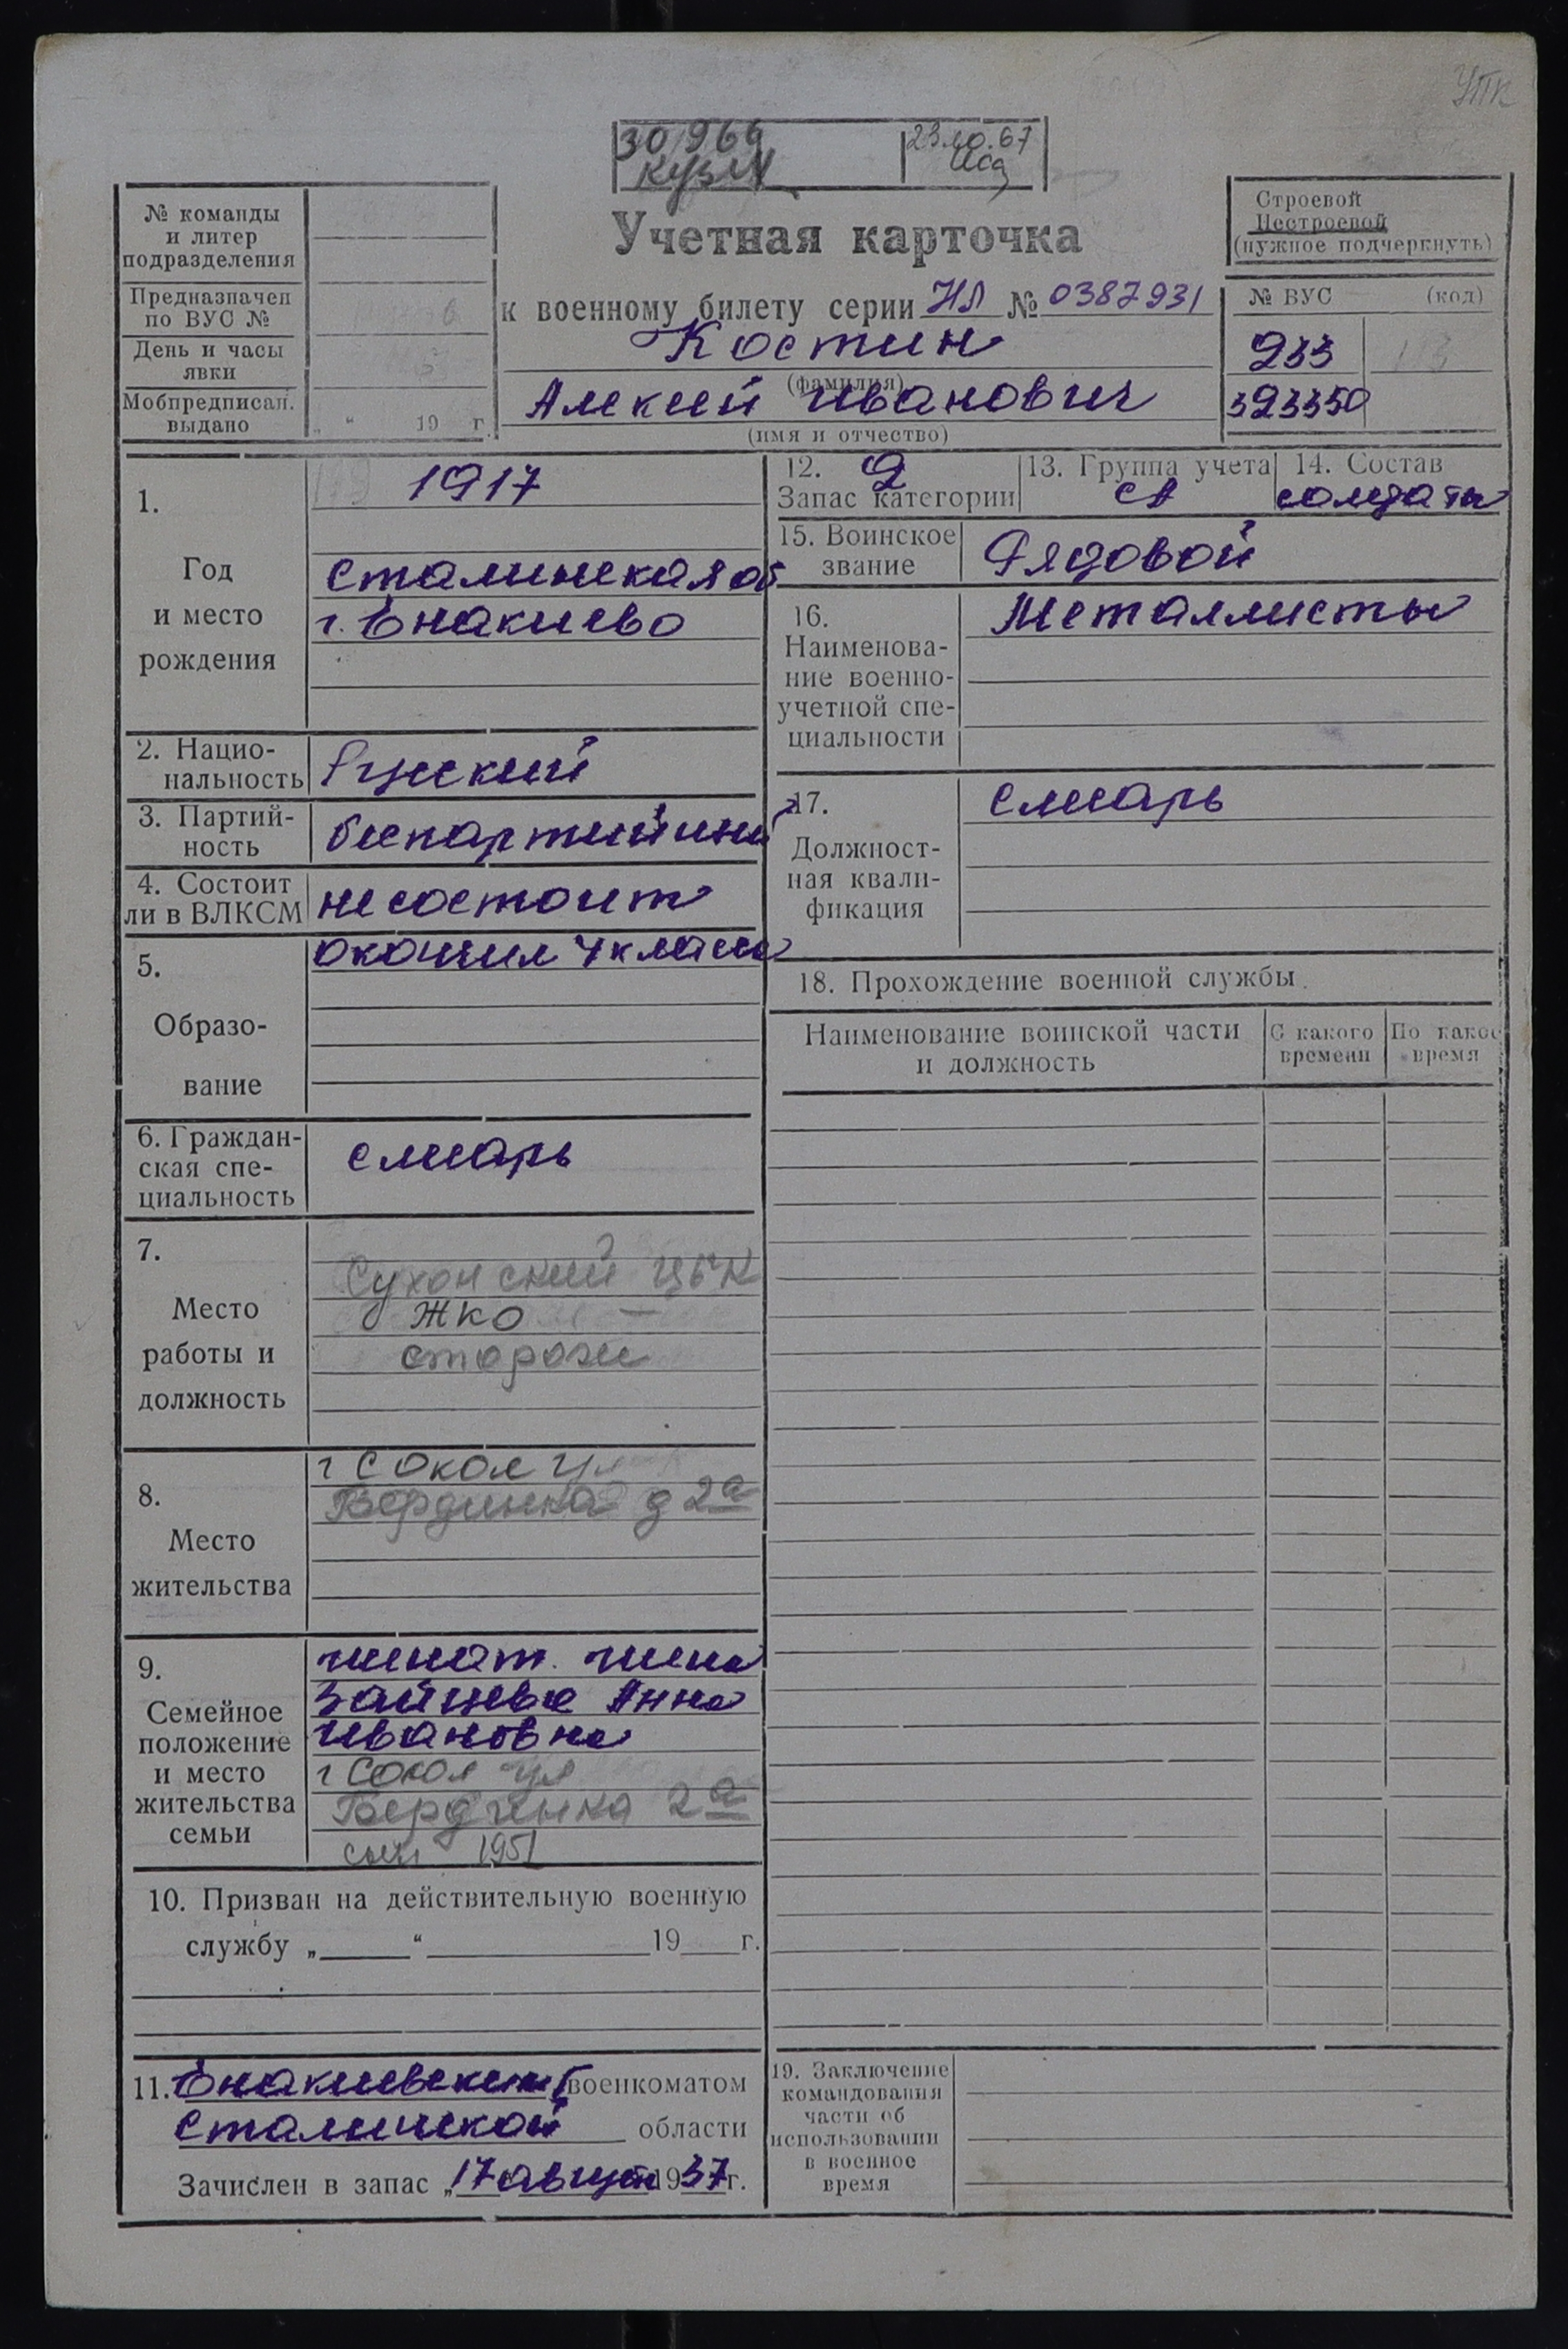 УПК
30 966 23.10.67
Кузм
№ команды
и литер
подразделения
Предназначен
по ВУС №
День и часы
явки
Мобпредписан.
выдано
„ “ 19 г.
Учетная карточка
к военному билету серии НЛ № 0387931
Костин
(фамилия)
Алексей Иванович
(имя и отчество)
Строевой
Нестроевой
(нужное подчеркнуть)
№ ВУС (код)
233
323350
1.
Год
и место
рождения
1917
Сталинская об
г. Енакиево
2. Нацио-
нальность
Русский
3. Партий-
ность
беспартийный
4. Состоит
ли в ВЛКСМ
не состоит
5.
Образо-
вание
окончил 4 класса
6. Граждан-
ская спе-
циальность
слесарь
7.
Место
работы и
должность
Сухонский ЦБК
ЖКО
сторож
8.
Место
жительства
г Сокол ул
Бердинка д 2а
9.
Семейное
положение
и место
жительства
семьи
женат. жена
Зайцева Анна
Ивановна
г Сокол ул
Бердинка 2а
сын 1951
10. Призван на действительную военную
службу „ “ 19 г.
11. Енакиевским военкоматом
Сталинской области
Зачислен в запас „17 август 1937 г.
12. 2
Запас категории
13. Группа учета
СА
14. Состав
солдаты
15. Воинское
звание
Рядовой
16.
Наименова-
ние военно-
учетной спе-
циальности
Металлисты
17.
Должност-
ная квали-
фикация
слесарь
18. Прохождение военной службы.
Наименование воинской части
и должность
С какого
времени
По какое
время
19. Заключение
командования
части об
использовании
в военное
время